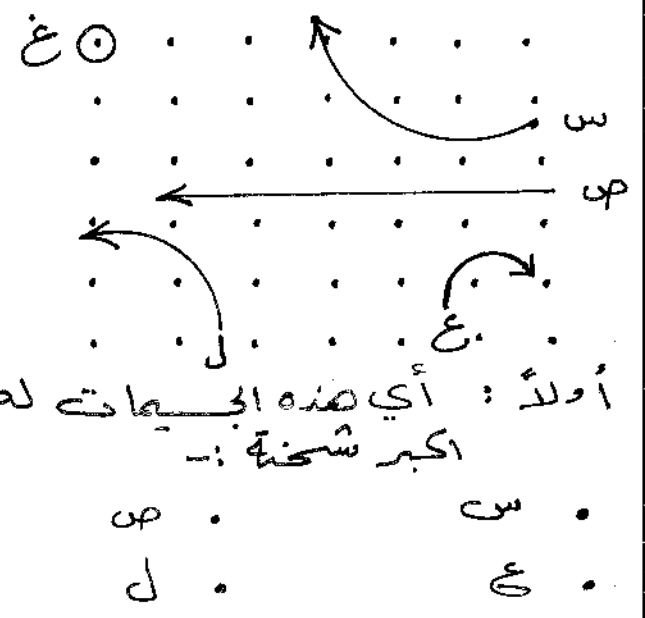 غ
س
ص
ل
ع
أولاً : أي هذه الجسيمات له
اكبر شحنة :-
• س • ص
• ع • ل